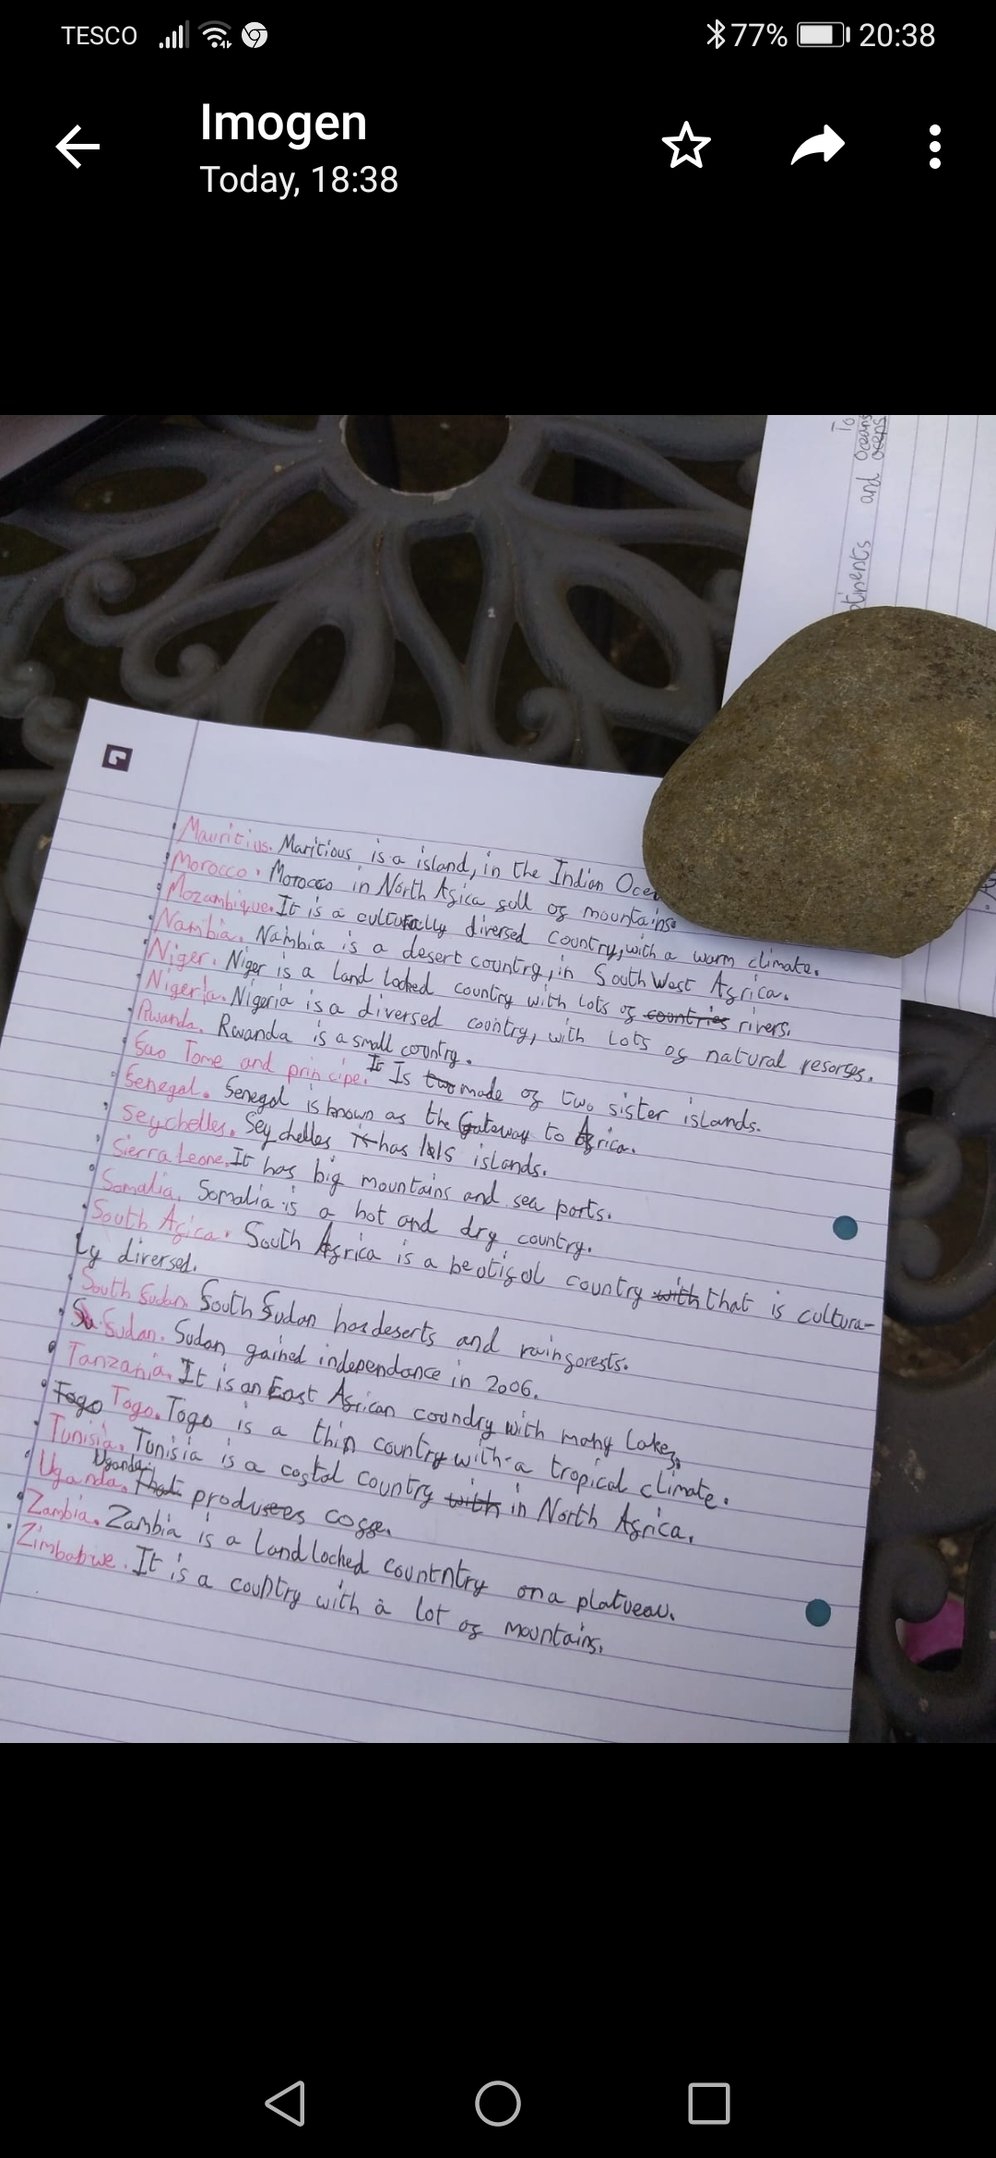 TESCO 77% 20:38
Imogen
Today, 18:38
To
Oceans
and ocens
ntinents
Mauritius. Maritious is a island, in the Indian Ocea
Morocco. Morocco in North Africa full of mountains.
Mozambique. It is a culturally diversed country, with a warm climate.
Nambia. Nambia is a desert country, in South West Africa.
Niger. Niger is a land locked country with lots of countries rivers.
Nigeria. Nigeria is a diversed country, with lots of natural resorses.
Rwanda. Rwanda is a small country.
Sao Tome and principe. It Is two made of two sister islands.
Senegal. Senegal is known as the Gateway to Africa.
Seychelles. Seychelles it has islands.
Sierra Leone. It has big mountains and sea ports.
Somalia. Somalia is a hot and dry country.
South Africa. South Africa is a beatifol country with that is cultura-
ly diversed.
South Sudan. South Sudan has deserts and rainforests.
Su Sudan. Sudan gained independance in 2006.
Tanzania. It is an East African coundry with many lakes.
Togo Togo. Togo is a thin country with a tropical climate.
Tunisia. Tunisia is a costal country with in North Africa.
Uganda
Uganda. That produsees coffe.
Zambia. Zambia is a landlocked countntry on a platueau.
Zimbabwe. It is a country with a lot of mountains.